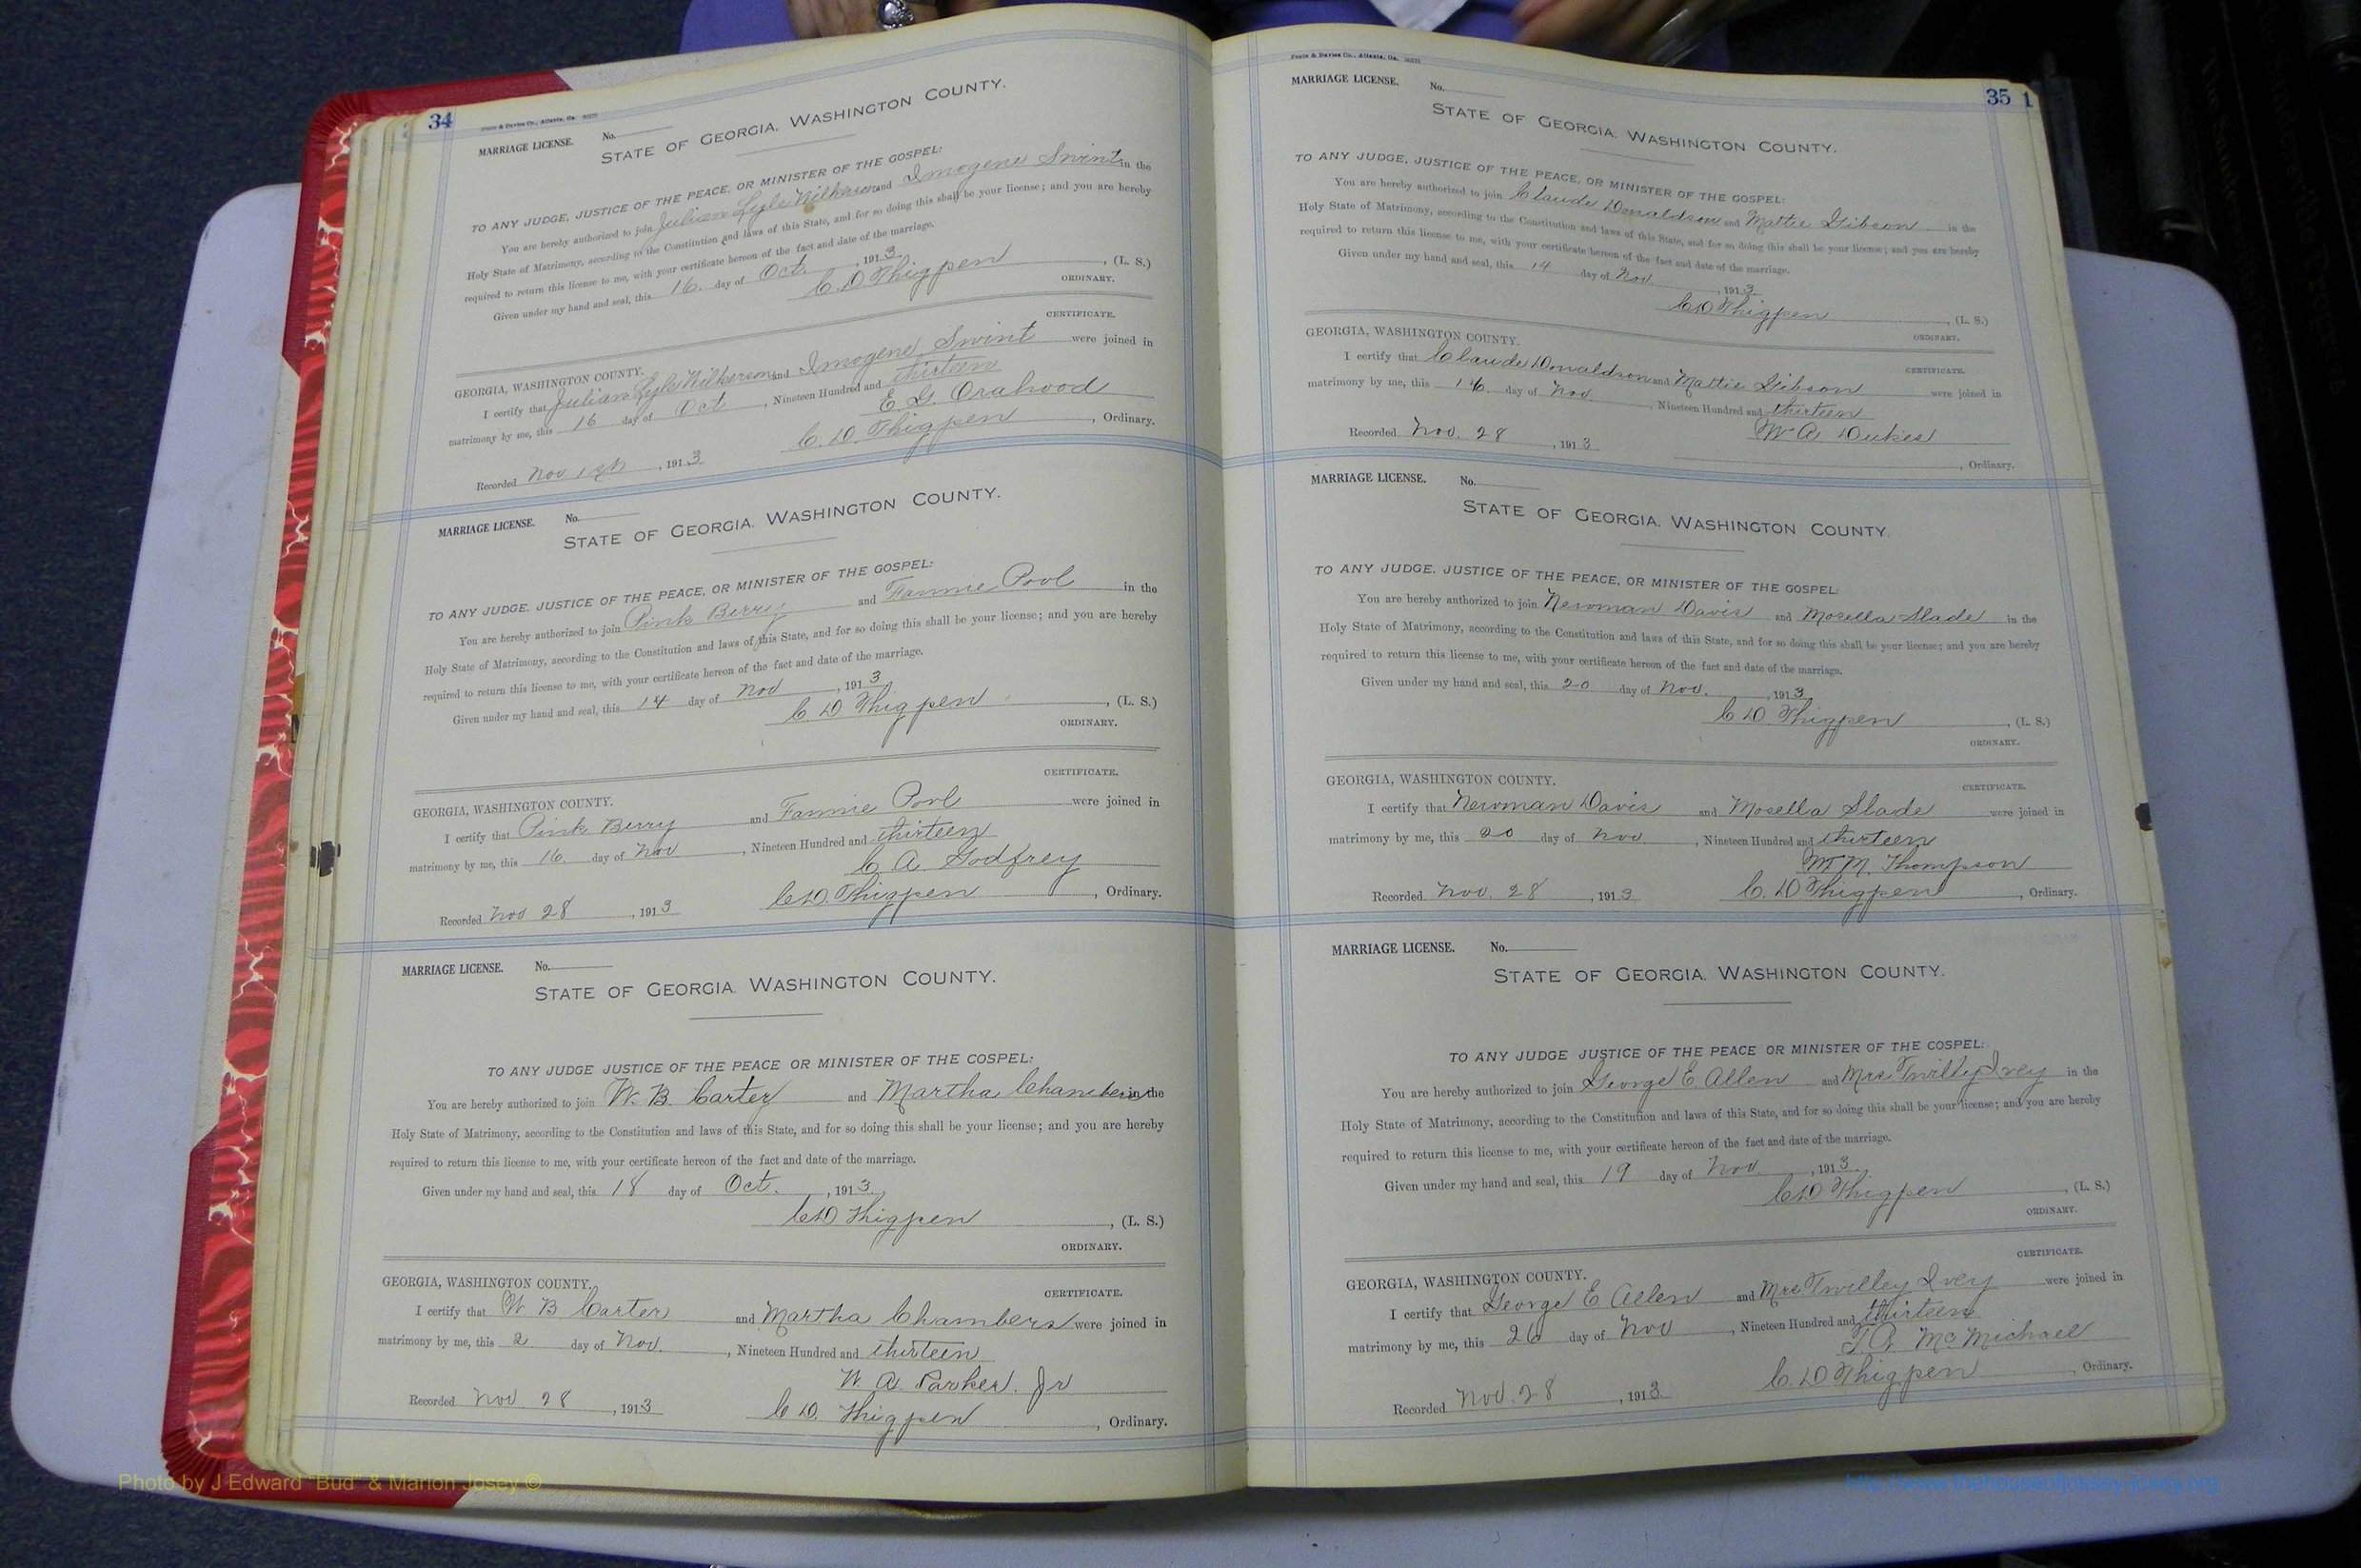 34
Foote & Davies Co., Atlanta, Ga.
MARRIAGE LICENSE. No.
STATE OF GEORGIA, WASHINGTON COUNTY.
TO ANY JUDGE, JUSTICE OF THE PEACE, OR MINISTER OF THE GOSPEL:
You are hereby authorized to join Julian Lyle Wilkerson and Imogene Swint in the
Holy State of Matrimony, according to the Constitution and laws of this State, and for so doing this shall be your license; and you are hereby
required to return this license to me, with your certificate hereon of the fact and date of the marriage.
Given under my hand and seal, this 16 day of Oct. , 1913
C. D. Thigpen , (L. S.)
ORDINARY.
CERTIFICATE.
GEORGIA, WASHINGTON COUNTY.
I certify that Julian Lyle Wilkerson and Imogene Swint were joined in
matrimony by me, this 16 day of Oct , Nineteen Hundred and thirteen
E. G. Orahood
Recorded Nov , 1913 C. D. Thigpen , Ordinary.
MARRIAGE LICENSE. No.
STATE OF GEORGIA, WASHINGTON COUNTY.
TO ANY JUDGE, JUSTICE OF THE PEACE, OR MINISTER OF THE GOSPEL:
You are hereby authorized to join Pink Berry and Fannie Pool in the
Holy State of Matrimony, according to the Constitution and laws of this State, and for so doing this shall be your license; and you are hereby
required to return this license to me, with your certificate hereon of the fact and date of the marriage.
Given under my hand and seal, this 14 day of Nov , 1913
C. D Thigpen , (L. S.)
ORDINARY.
CERTIFICATE.
GEORGIA, WASHINGTON COUNTY.
I certify that Pink Berry and Fannie Pool were joined in
matrimony by me, this 16 day of Nov , Nineteen Hundred and thirteen
C. A. Godfrey
Recorded Nov 28 , 1913 C. D. Thigpen , Ordinary.
MARRIAGE LICENSE. No.
STATE OF GEORGIA, WASHINGTON COUNTY.
TO ANY JUDGE JUSTICE OF THE PEACE OR MINISTER OF THE GOSPEL:
You are hereby authorized to join W. B. Carter and Martha Chambers in the
Holy State of Matrimony, according to the Constitution and laws of this State, and for so doing this shall be your license; and you are hereby
required to return this license to me, with your certificate hereon of the fact and date of the marriage.
Given under my hand and seal, this 18 day of Oct. , 1913
C. D Thigpen , (L. S.)
ORDINARY.
CERTIFICATE.
GEORGIA, WASHINGTON COUNTY.
I certify that W B Carter and Martha Chambers were joined in
matrimony by me, this 2 day of Nov. , Nineteen Hundred and thirteen
W. A. Parker. Jr
Recorded Nov 28 , 1913 C. D. Thigpen , Ordinary.
35 1
Foote & Davies Co., Atlanta, Ga.
MARRIAGE LICENSE. No.
STATE OF GEORGIA, WASHINGTON COUNTY.
TO ANY JUDGE, JUSTICE OF THE PEACE, OR MINISTER OF THE GOSPEL:
You are hereby authorized to join Claude Donaldson and Mattie Gibson in the
Holy State of Matrimony, according to the Constitution and laws of this State, and for so doing this shall be your license; and you are hereby
required to return this license to me, with your certificate hereon of the fact and date of the marriage.
Given under my hand and seal, this 14 day of Nov. , 1913
C. D Thigpen , (L. S.)
ORDINARY.
GEORGIA, WASHINGTON COUNTY.
CERTIFICATE.
I certify that Claude Donaldson and Mattie Gibson were joined in
matrimony by me, this 16 day of Nov , Nineteen Hundred and thirteen
W A Dukes
Recorded Nov. 28 , 1913 , Ordinary.
MARRIAGE LICENSE. No.
STATE OF GEORGIA, WASHINGTON COUNTY.
TO ANY JUDGE, JUSTICE OF THE PEACE, OR MINISTER OF THE GOSPEL:
You are hereby authorized to join Newman Davis and Mosella Slade in the
Holy State of Matrimony, according to the Constitution and laws of this State, and for so doing this shall be your license; and you are hereby
required to return this license to me, with your certificate hereon of the fact and date of the marriage.
Given under my hand and seal, this 20 day of Nov. , 1913
C. D. Thigpen , (L. S.)
ORDINARY.
GEORGIA, WASHINGTON COUNTY.
CERTIFICATE.
I certify that Newman Davis and Mosella Slade were joined in
matrimony by me, this 20 day of Nov , Nineteen Hundred and thirteen
W M. Thompson
Recorded Nov. 28 , 1913 C. D Thigpen , Ordinary.
MARRIAGE LICENSE. No.
STATE OF GEORGIA, WASHINGTON COUNTY.
TO ANY JUDGE JUSTICE OF THE PEACE OR MINISTER OF THE GOSPEL:
You are hereby authorized to join George E Allen and Mrs Twilley Ivey in the
Holy State of Matrimony, according to the Constitution and laws of this State, and for so doing this shall be your license; and you are hereby
required to return this license to me, with your certificate hereon of the fact and date of the marriage.
Given under my hand and seal, this 19 day of Nov , 1913
C. D Thigpen , (L. S.)
ORDINARY.
CERTIFICATE.
GEORGIA, WASHINGTON COUNTY.
I certify that George E Allen and Mrs Twilley Ivey were joined in
matrimony by me, this day of Nov , Nineteen Hundred and thirteen
McMichael
Recorded Nov. 28 , 1913 C. D Thigpen , Ordinary.
Photo by J Edward "Bud" & Marion Josey ©
http://www.thehouseofjossey-josey.org